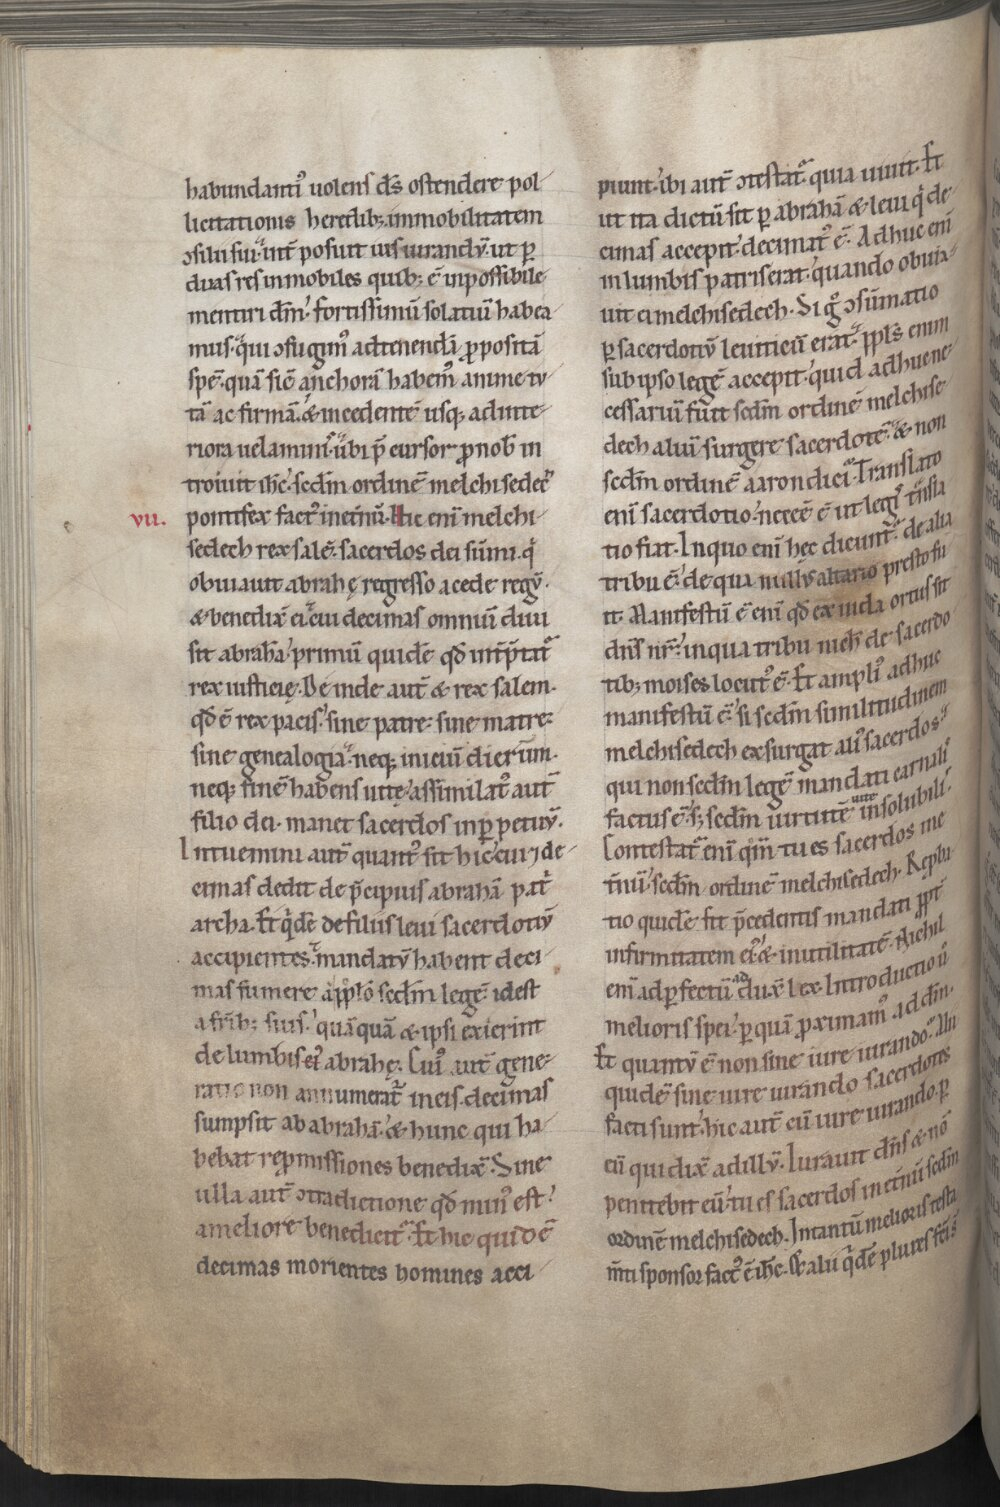 habundanti᷒ uolens d̄s ostendere pol-
licitationis heredib; immobilitatem
ↄsilii sui. int̄ posuit iusiurandū. ut ꝑ
duas res inmobiles quib; ē inpossibile
mentiri dm̄. fortissimū solatiū habea
mus. qui ↄfugim᷒ ad tenendā ꝓpositā
spē. quā sic̄ anchorā habem᷒ anime tu
tā ac firmā. & incedentē usq; ad inte-
riora uelaminis. ubi p̄cursor ꝓ nob̄ in
troiuit ih̄c. sc̄dm ordinē melchisedech
vii. pontifex fact᷒ inet̄nū. Hic eni melchi-
sedech rex salē. sacerdos dei sūmi. q̇
obuiauit abrahę regresso a cede regū.
& benedix̄ ei. cui decimas omniū diui
sit abrahā. primū quidē qd̄ int̄ptat᷒
rex iusticię. Deinde aut̄ & rex salem.
qd̄ ē rex pacis. sine patre. sine matre.
sine genealogia. neq; iniciū dierum.
neq; finē habens uitę. assimilat᷒ aut̄
filio dei. manet sacerdos inꝑpetuū.
Intuemini aut̄ quant᷒ sit hic. cui ⁊ de
cimas dedit de p̄cipuis abrahā pat̄
archa. Et q̇dē de filiis leui sacerdotiū
accipientes. mandatū habent deci-
mas sumere a pp̄lo sc̄dm legē. idest
a fr̄ib; suis. quāquā & ipsi exierint
de lumbis abrahę. Cui᷒ aut̄ gene-
ratio non annumerat᷒ in eis. decimas
sumpsit ab abrahā. & hunc qui ha-
bebat repmissiones benedix̄. Sine
ulla aut̄ ↄtradictione qd̄ min᷒ est.
a meliore benedicit᷒. Et hic quidē
decimas morientes homines acci-
piunt. ibi aut̄ ↄtestat᷒ quia uiuit. Et
ut ita dictū sit ꝑ abrahā & leui q̇ de-
cimas accepit. decimat᷒ ē. Adhuc eni
in lumbis patris erat. quando obuia-
uit ei melchisedech. Si g̊ ↄsūmatio
ꝑ sacerdotiū leuiticū erat. ppl̄s enim
sub ipso legē accepit. quid adhuc ne-
cessariū fuit sc̄dm ordinē melchise-
dech aliū surgere sacerdotē. & non
sc̄dm ordinē aaron dici. Translato
eni sacerdotio. necē ē ut legis t̄nsla
tio fiat. In quo eni hęc dicunt᷒. de alia
tribu ē. de qua nullus altario presto fu
it. Manifestū ē eni qd̄ ex iuda ortus sit
dn̄s nr̄. in qua tribu nich̄ de sacerdo
tib; moises locut᷒ ē. Et ampli᷒ adhuc
manifestū ē. si sc̄dm similitudinem
melchisedech exsurgat ali᷒ sacerdos.
qui non sc̄dm legē mandati carnalis
factus ē. s; sc̄dm uirtutē uite insolubilis.
Contestat᷒ eni qm̄ tu es sacerdos ine
t̄nū. sc̄dm ordinē melchisedech. Reꝓba
tio quidē fit p̄cedentis mandati ꝓpt̄
infirmitatem ei᷒. & inutilitatē. Nichil
eni ad ꝑfectū addux̄ lex. Introductio ū
melioris spei. ꝑ quā ꝓximam᷒ ad dm̄.
Et quantū ē non sine iure iurando. Alii
quidē sine iure iurando sacerdotes
facti sunt. hic aut̄ cū iure iurando. ꝑ
eū qui dix̄ ad illū. Iurauit dn̄s & nō
penitebit eū. tu es sacerdos inet̄nū sc̄dm
ordinē melchisedech. Intantū melioris testa
m̄ti sponsor fact᷒ ē ih̄c. Et alii q̇dē plures fc̄i s̄